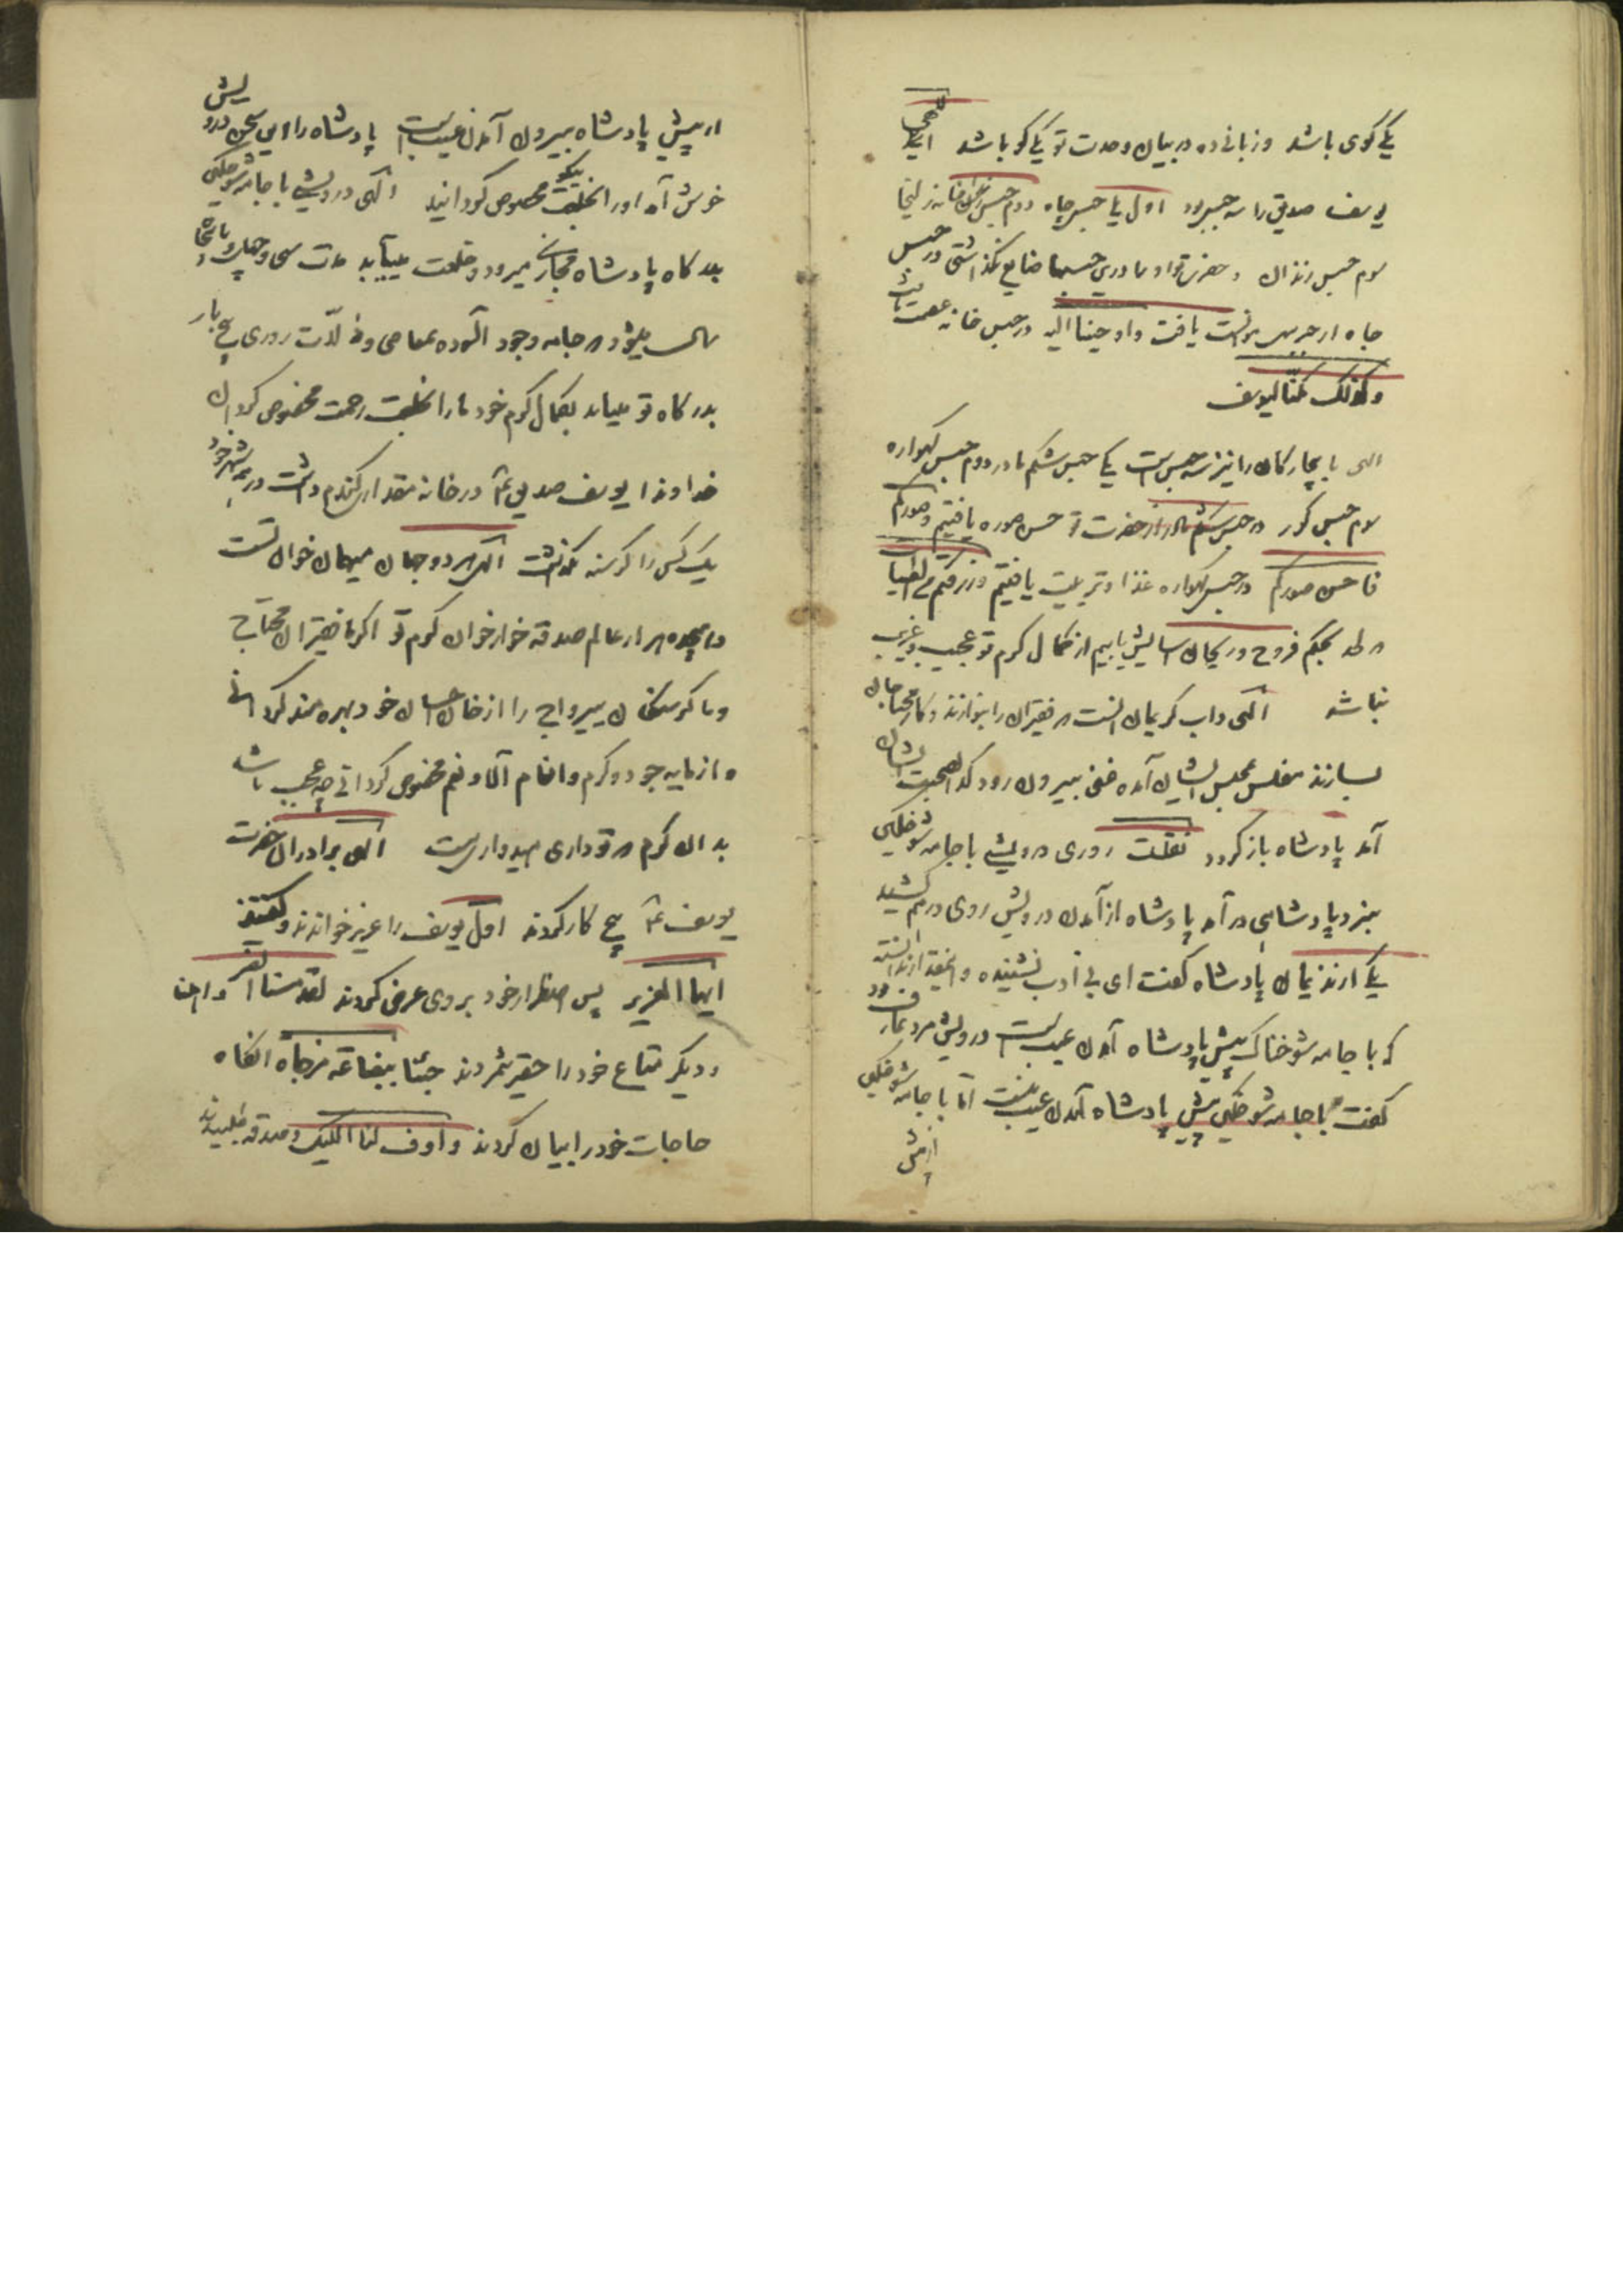 یکی گوی باشد و زبانی ده در بیان وحدت تو یکی گو باشد الهی
یوسف صدیق را سه حبس بود اول یا حبس چاه دوم حبس خانه زلیخا
سوم حبس زندان و حضرت تو او را درین حبسها ضایع نگذاشتی در حبس
چاه از جبریل مؤانست یافت و اوحینا الیه در حبس خانه عصمت یافت
وکذلک مکنّا لیوسف
الهی ما بیچارگان را نیز سه حبس است یکی حبس شکم مادر دوم حبس گهواره
سوم حبس گور در حبس شکم مادر از حضرت تو حسن صوره یافتیم وصورکم
فاحسن صورکم در حبس گهواره غذا و تربیت یافتیم ورزقکم من الطیبات
در لحد بحکم فروح وریحان آسایش یابیم از کمال کرم تو عجیب و غریب
نباشد الهی داب کریمان آنست که فقیران را بنوازند و کار محتاجان
بسازند مفلس بمجلس ایشان آمده غنی بیرون رود گدا بصحبت ایشان
آمد پادشاه باز گردد نقلست روزی درویشی با جامه شوخگین
بنزد پادشاهی در آمد پادشاه از آمدن درویش روی درهم کشید
یکی از ندیمان پادشاه گفت ای بی ادب نشنیده و اینقدر ندانسته
که با جامه شوخناک پیش پادشاه آمدن عیب است درویش مرد عارف بود
گفت با جامه شوخگین پیش پادشاه آمدن عیب نیست اما با جامه شوخگین
از پیش
از پیش پادشاه بیرون آمدن عیب است پادشاه را این سخن درویش
خوش آمد او را بخلعت نیکو مخصوص گردانید الهی درویشی با جامه شوخگین
بدرگاه پادشاه مجازی میرود و خلعت مییابد مدت سی و چهل و پنجاه
سال میشود که جامه وجود آلوده بمعاصی و زلّات روزی پنج بار
بدرگاه تو میاید بکمال کرم خود ما را بخلعت رحمت مخصوص گردان
خداوندا یوسف صدیق عم در خانه مقدار گندم داشت در همه شهر خود
یک کس را گرسنه نگذاشت الهی هر دو جهان میهمان خوان تست
و هجده هزار عالم صدقه خوار خوان کرم تو اگر ما فقیران محتاج
و ما گرسنگان بیرواج را از خان احسان خود بهره مند گردانی
و از مایه جود و کرم و انعام آلا و نعم مخصوص گردانی چه عجب باشد
بدان کرم که تو داری امیدواریست الهی برادران حضرت
یوسف عم پنج کار کردند اول یوسف را عزیز خواندند و گفتند
ایها العزیز پس اضطرار خود بروی عرض کردند لقد مسنا الضر واهلنا
و دیگر متاع خود را حقیر شمردند جئنا ببضاعة مزجاة آنگاه
حاجات خود را بیان کردند واوف لنا الکیل و صدقه طلبیدند